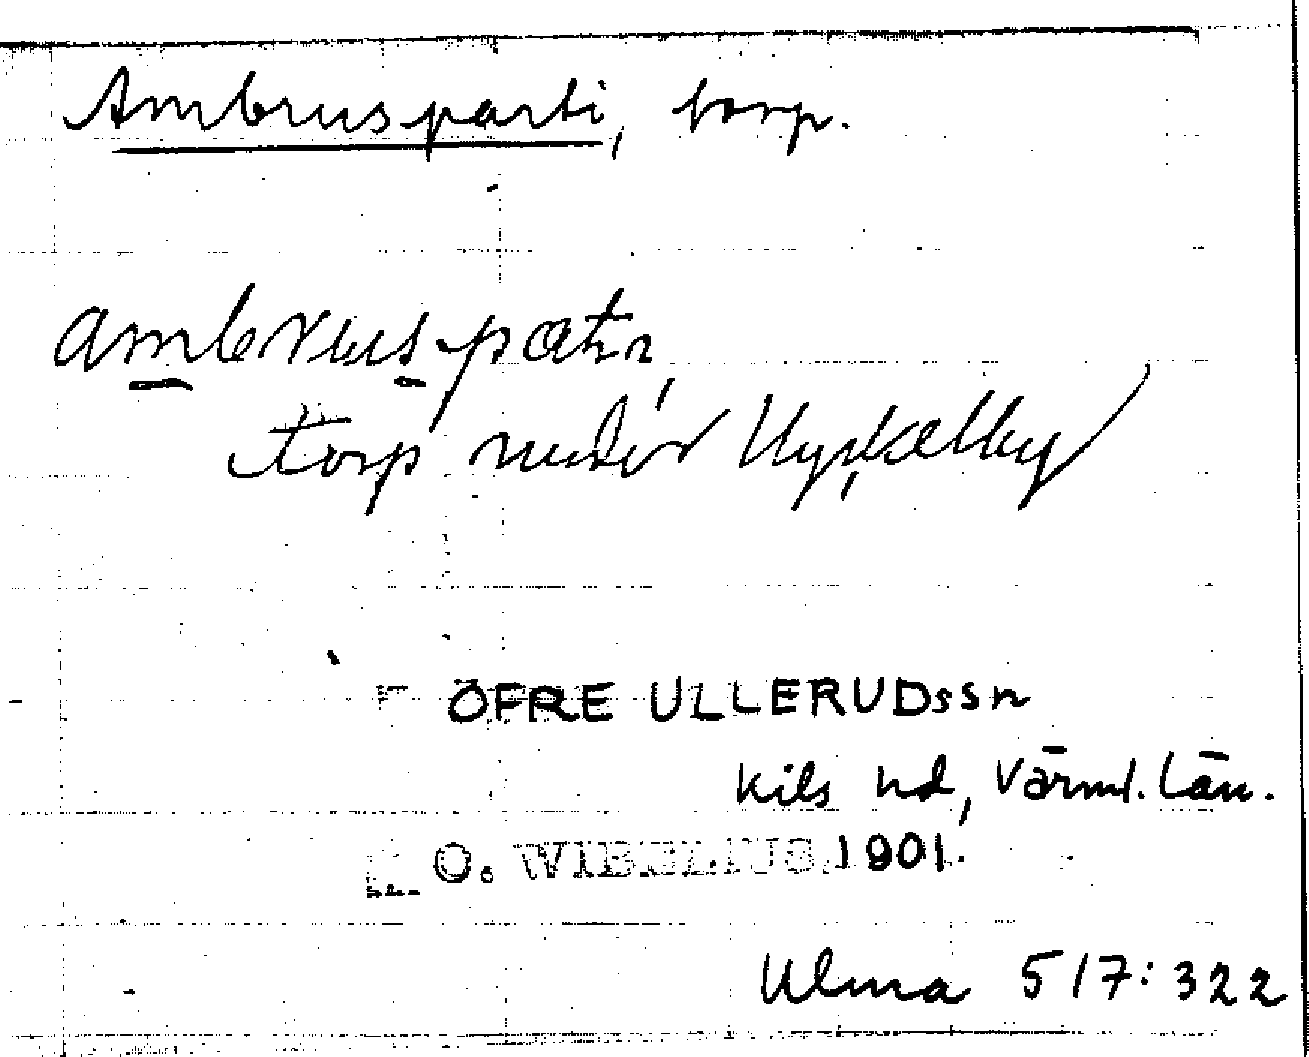 Ambrusparti, torp.
ambrus-pætɩ
torp under Hyskelby
ÖFRE ULLERUDssn
Kils hd, Värml. län.
O. WIBELIUS 1901.
Ulma 517:322